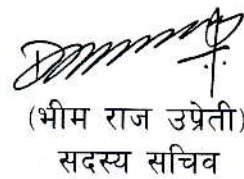 (भीम राज उप्रेती)
सदस्य सचिव